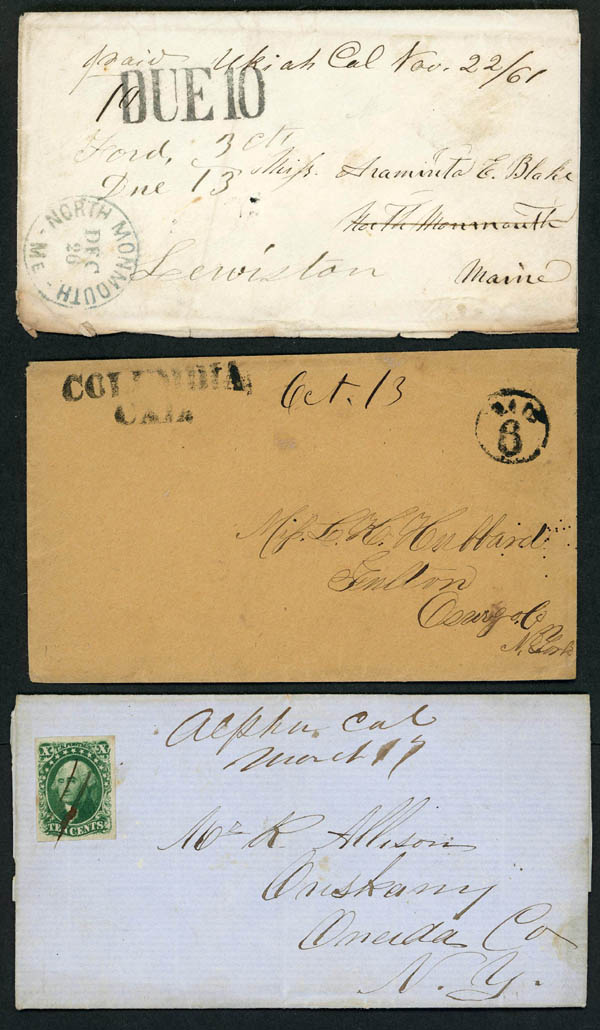 paid Ukiah Cal Nov. 22/61
10
DUE 10
Ford, 3 cts
Due 13
Miss. Araminta E. Blake
North Monmouth
Lewiston
Maine
NORTH MONMOUTH - ME -
DEC
26
COLUMBIA
CAL.
Oct. 13
6
Miss. L. H. Hubbard
Fulton
Oswego. Co
N. York
X X
TEN CENTS
Alpha Cal
March 17
Mr K. Allison
Oriskany
Oneida Co
N. Y.